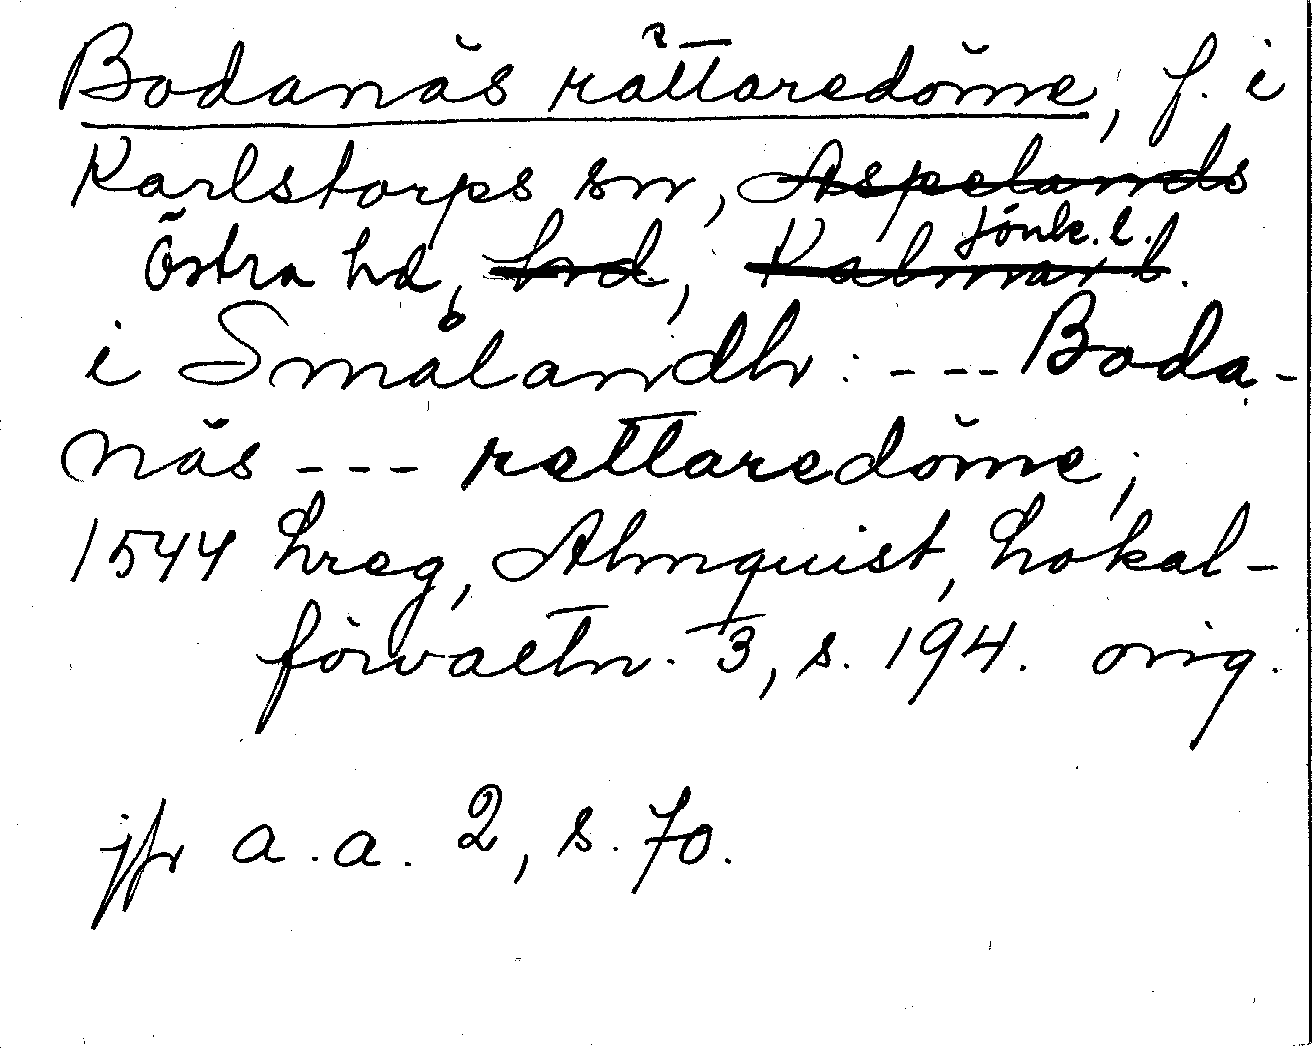 Bodanäs rättaredöme, f. i
Karlstorps sn, Aspelands
Östra hd, hrd, Kalmar l. Jönk. l.
i Smålandh: --- Boda-
näs --- rettaredöme;
1544 hreg, Almquist, Lokal-
förvaltn. 3, s. 194. orig.
jfr a.a. 2, s. 70.